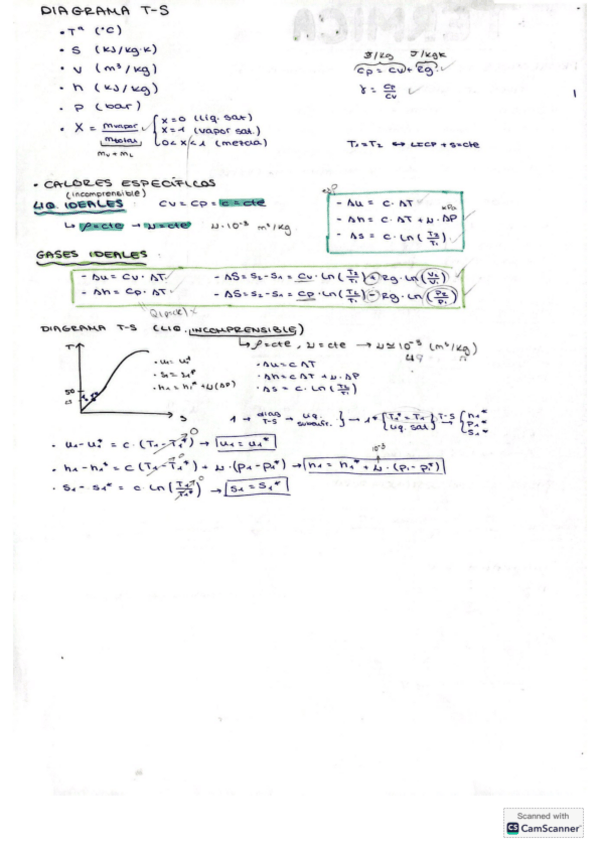 DIAGRAMA T-S
• Tª (ºC)
• S (kJ/kg·K)
• v (m³/kg)
• h (kJ/kg)
• P (bar)
• X = mvapor / mtotal { x=0 (líq. sat)
x=1 (vapor sat.)
0<x<1 (mezcla)
mv + mL
J/kg J/kgK
Cp = Cv + Rg
γ = Cp/Cv
1
T1=T2 ↔ LICP + S=cte
• CALORES ESPECÍFICOS
(incomprensible)
LIQ. IDEALES: Cv = Cp = c = cte
↳ ρ=cte → v=cte v·10⁻³ m³/kg
- Δu = C·ΔT
kPa
- Δh = C·ΔT + v·ΔP
- Δs = C·Ln(T2/T1)
GASES IDEALES:
- Δu = Cv·ΔT - ΔS = S2-S1 = Cv·Ln(T2/T1) + Rg·Ln(V2/V1)
- Δh = Cp·ΔT - ΔS = S2-S1 = Cp·Ln(T2/T1) - Rg·Ln(P2/P1)
DIAGRAMA T-S (LIQ. INCOMPRENSIBLE)
↳ ρ=cte, v=cte → v≃10⁻³ (m³/kg)
T
S
50
• u1 = u1*
• s1 = s1*
• h1 = h1* + v(ΔP)
• Δu = CΔT
• Δh = CΔT + v·ΔP
• Δs = C·Ln(T2/T1)
1 → diag T-S → líq. subenfr. } → 1* [T1* = T1 líq. sat] T-S → { h1*
P1*
S1*
• u1-u1* = c·(T1-T1*) → u1 = u1*
0
10⁻³
• h1-h1* = c(T1-T1*) + v·(P1-P1*) → h1 = h1* + v·(P1-P1*)
0
• S1-S1* = c·Ln(T1/T1*) → S1 = S1*
0
Scanned with
CS CamScanner